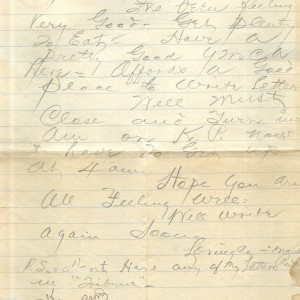 I've been feeling
Very Good - Get Plenty
To Eat - Have a
Pretty Good Y.M.C.A
Here - Affords a Good
Place to Write Letters
Well Must
Close and Turn in
Am on K.P. now
& have to Get up
At 4 am.
Hope You are
All Feeling Well.
Will Write
again Soon.
Lovingly -
P.S. - Don't Have any of My Letters
in "Tribune" -